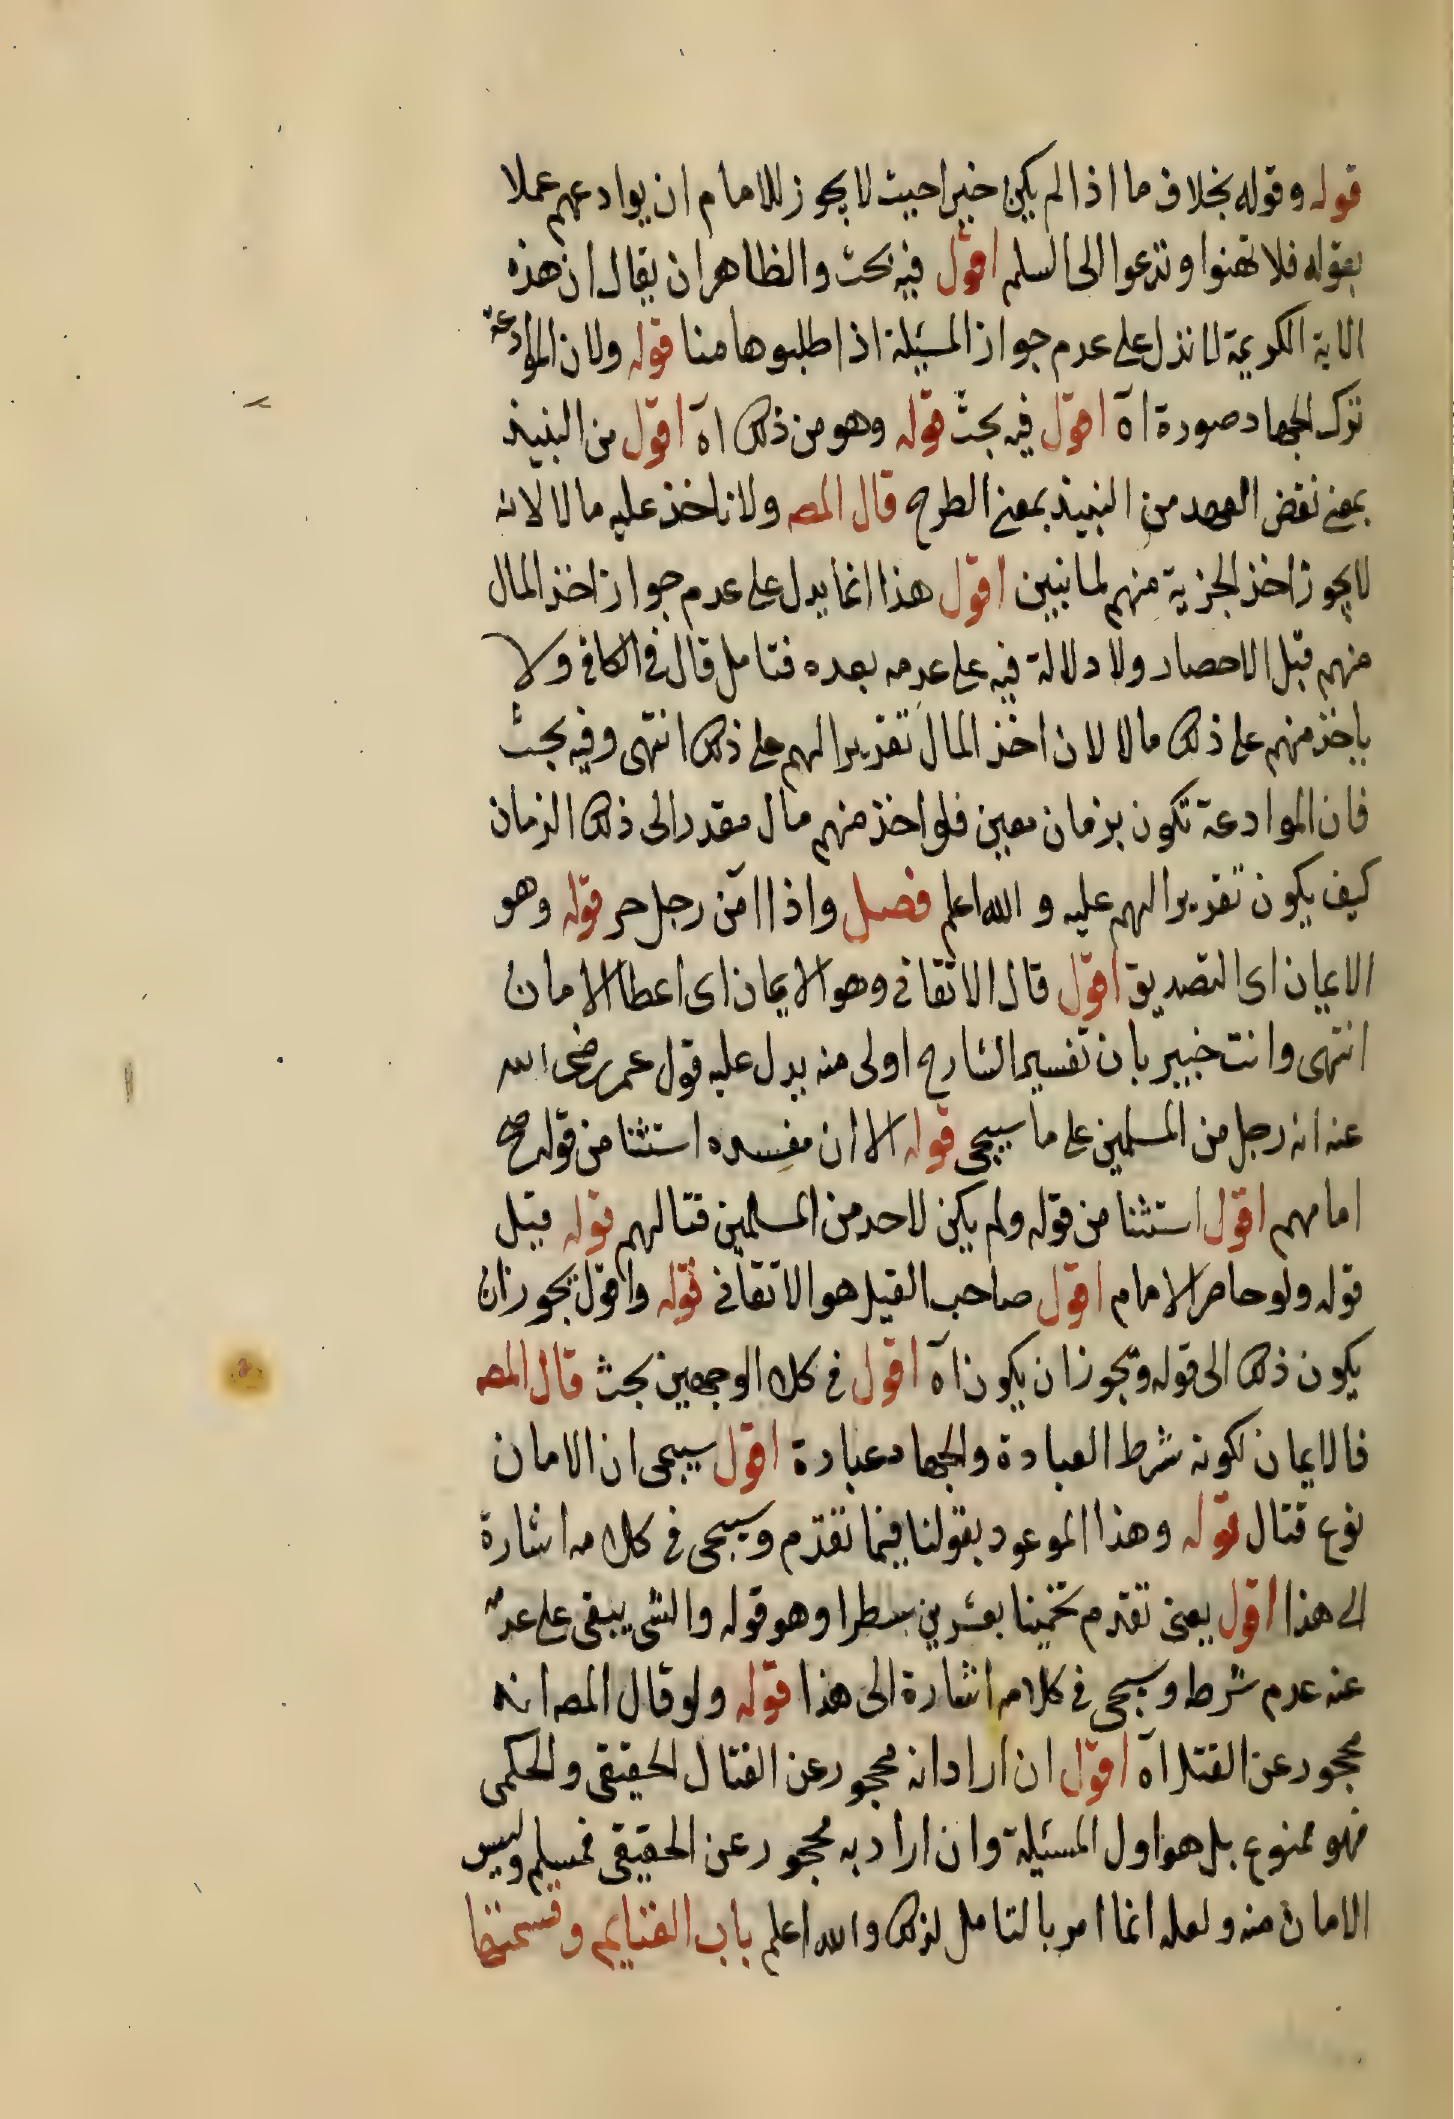 قوله وقوله بخلاف ما اذا لم يكن خيرا حيث لا يجوز للامام ان يوادعهم عملا
بقوله فلا تهنوا وتدعوا الى السلم اقول فيه بحث والظاهر ان يقال ان هذه
الاية الكريمة لا تدل على عدم جواز المسئلة اذا طلبوها منا قوله ولان الموادعة
ترك الجهاد صورة اه اقول فيه بحث قوله وهو من ذلك اه اقول من النبيذ
بمعنى نقض العهد من النبيذ بمعنى الطرح قال المصه ولا ناخذ عليه مالا لانه
لا يجوز اخذ الجزية منهم لما نبين اقول هذا انما يدل على عدم جواز اخذ المال
منهم قبل الاحصار ولا دلالة فيه على عدمه بعده فتامل قال في الكافي ولا
ياخذ منهم على ذلك مالا لان اخذ المال تقديرا لهم على ذلك انتهى وفيه بحث
فان الموادعة تكون بزمان معين فلو اخذ منهم مال مقدر الى ذلك الزمان
كيف يكون تقديرا لهم عليه والله اعلم فصل واذا امن رجل حر قوله وهو
الايمان اى التصديق اقول قال الاتقاني وهو الايمان اى اعطا الامان
انتهى وانت خبير بان تفسير الشارح اولى منه يدل عليه قول عمر رضى الله
عنه انه رجل من المسلمين على ما سيجى قوله الا ان مفسده استثنا من قوله صح
امامهم اقول استثنا من قوله ولم يكن لاحد من المسلمين قتالهم قوله قيل
قوله ولو حاصر الامام اقول صاحب القيل هو الاتقاني قوله واقول يجوز ان
يكون ذلك الى قوله ويجوز ان يكون اه اقول في كلا الوجهين بحث قال المصه
فالايمان لكونه شرط العبادة والجهاد عبادة اقول سيجى ان الامان
نوع قتال قوله وهذا الموعود بقولنا فيما تقدم وسيجى في كلامه اشارة
الى هذا اقول يعنى تقدم تخمينا بعشرين سطرا وهو قوله والشى يبقى على عدمه
عنه عدم شرطه وسيجى في كلامه اشارة الى هذا قوله ولو قال المصه انه
محجور عن القتل اه اقول ان اراد انه محجور عن القتال الحقيقى والحكمى
فهو ممنوع بل هو اول المسئلة وان اراد به محجور عن الحقيقى فمسلم وليس
الامان منه ولعله انما امر بالتامل لذلك والله اعلم باب الغنايم وقسمتها